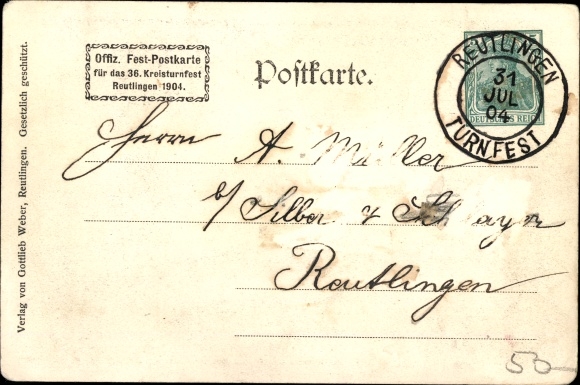 Offiz. Fest-Postkarte
für das 36. Kreisturnfest
Reutlingen 1904.
Postkarte.
REUTLINGEN
31
JUL
04
TURNFEST
DEUTSCHES REICH
Herrn A. Müller
b/ Silber &
Reutlingen
Verlag von Gottlieb Weber, Reutlingen. Gesetzlich geschützt.
50